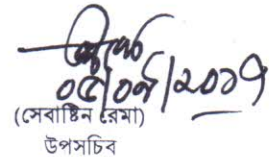 ০৫/০৮/২০১৭
(সেবাষ্টিন রেমা)
উপসচিব